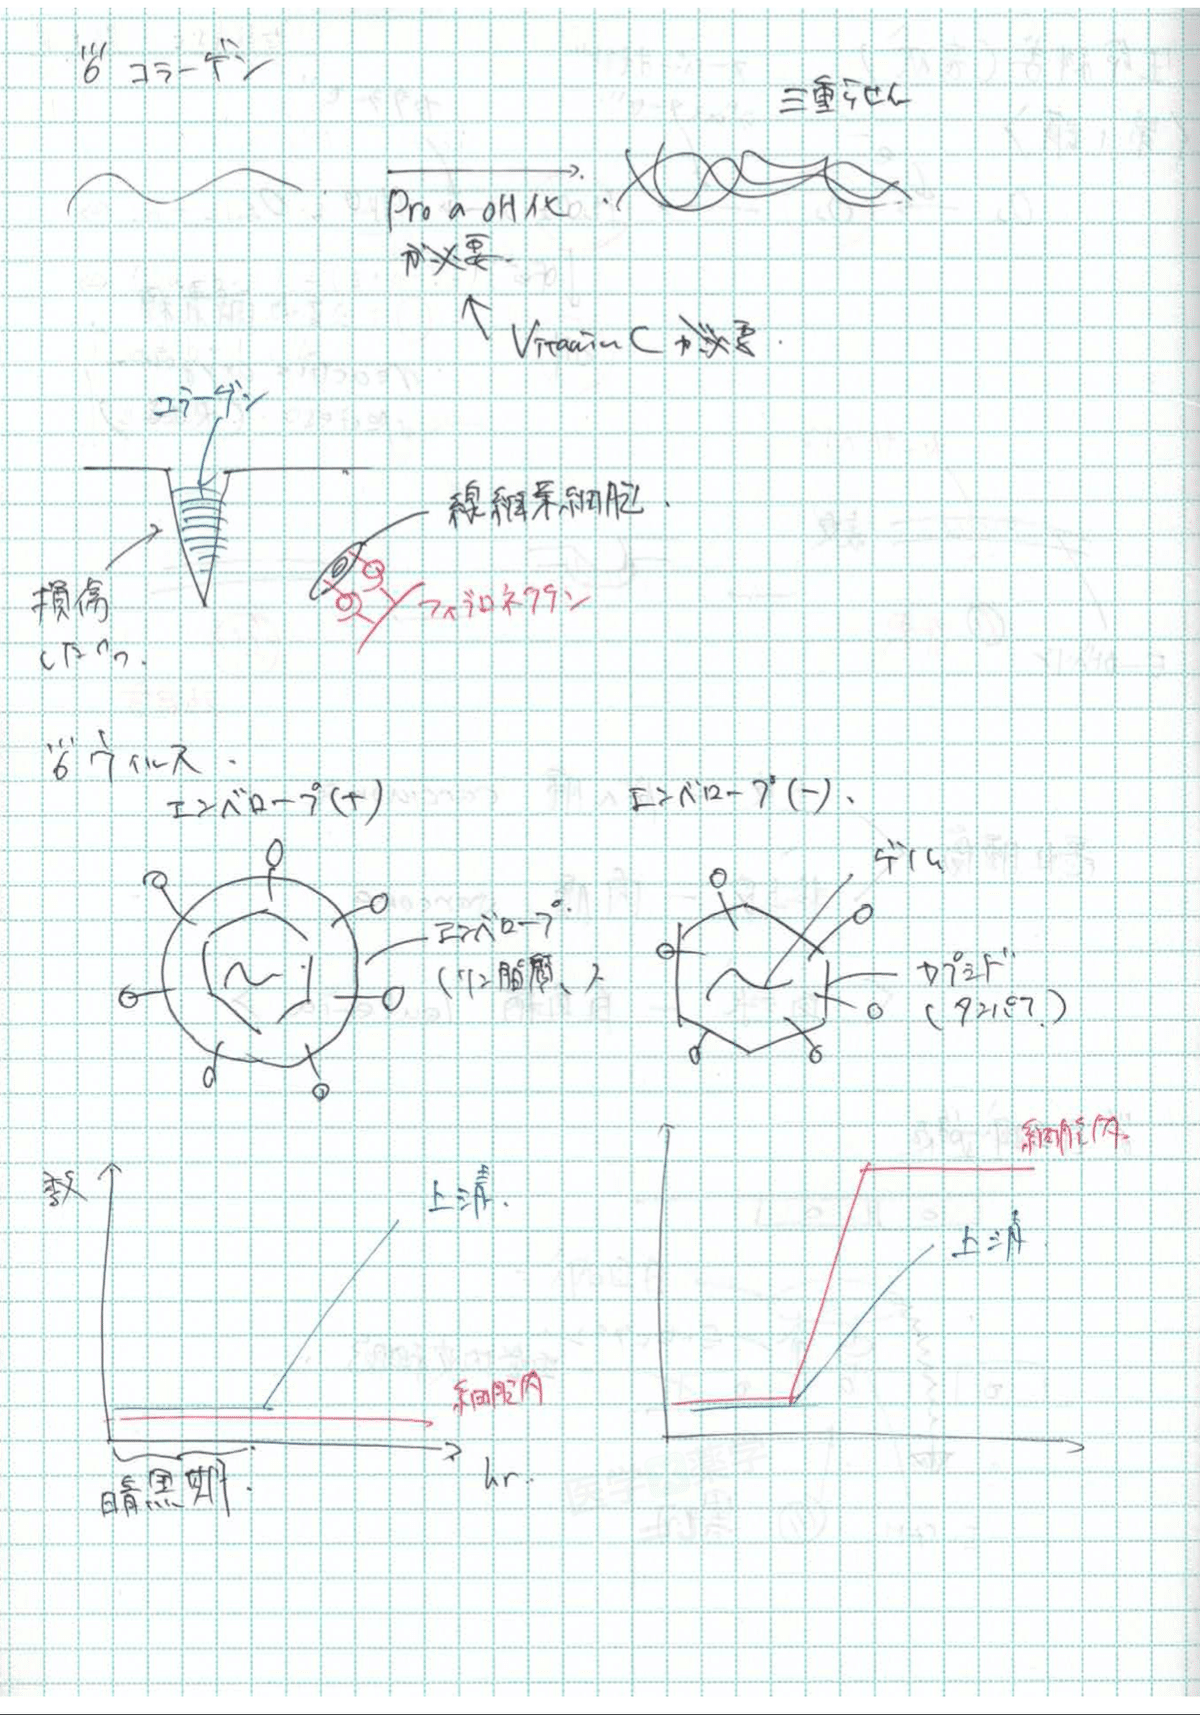 コラーゲン
三重らせん
ProのOH化
が必要.
Vitamin Cが必要.
コラーゲン
線維芽細胞.
フィブロネクチン
損傷
ウイルス.
エンベロープ(+)
エンベロープ(-).
ゲノム
エンベロープ
(リン脂質)
カプシド
(タンパク.)
数
上清.
細胞内
暗黒期.
hr.
細胞内
上清.